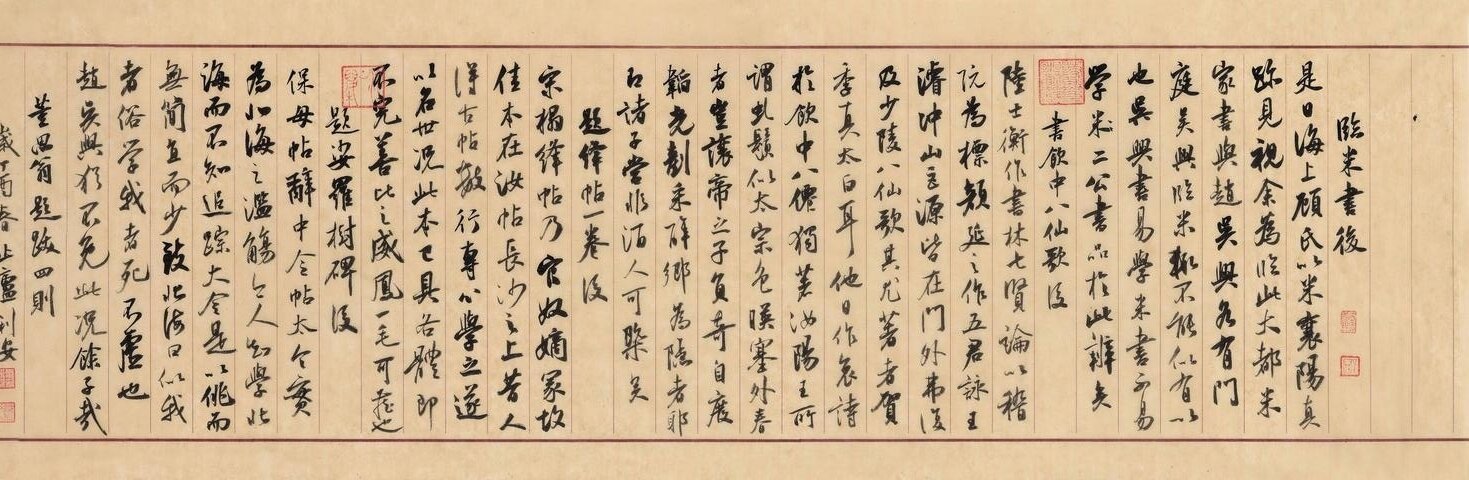 臨米書後
是日海上顧氏以米襄陽真
跡見視余為臨此大都米
家書與趙吳興各有門
庭吳興臨米輒不能似有以
也吳興書易學米書不易
學米二公書品於此辨矣
書飲中八仙歌後
陸士衡作書林七賢論以嵇
阮為標顏延之作五君詠王
濬沖山巨源皆在門外弗後
及少陵八仙歌其尤著者賀
季真太白耳他日作哀詩
於飲中八僊獨著汝陽王所
謂虬鬚似太宗色暎塞外春
者豈讓帝之子負奇自廢
韜光剷采醉鄉為隱者耶
於諸子當非酒人可槩矣
題絳帖一卷後
宋搨絳帖乃官奴嫡冢故
佳本在汝帖長沙之上昔人
得古帖數行專心學之遂
以名世况此本已具各體即
不完善比之威鳳一毛可𦵏也
題娑羅樹碑後
保母帖辭中令帖太令實
為北海之濫觴今人知學北
海而不知追踪大令是以佻而
無簡直而少致北海曰似我
者俗學我者死不虛也
趙吳興猶不免此况餘子哉
董思翁題跋四則
歲丁酉春